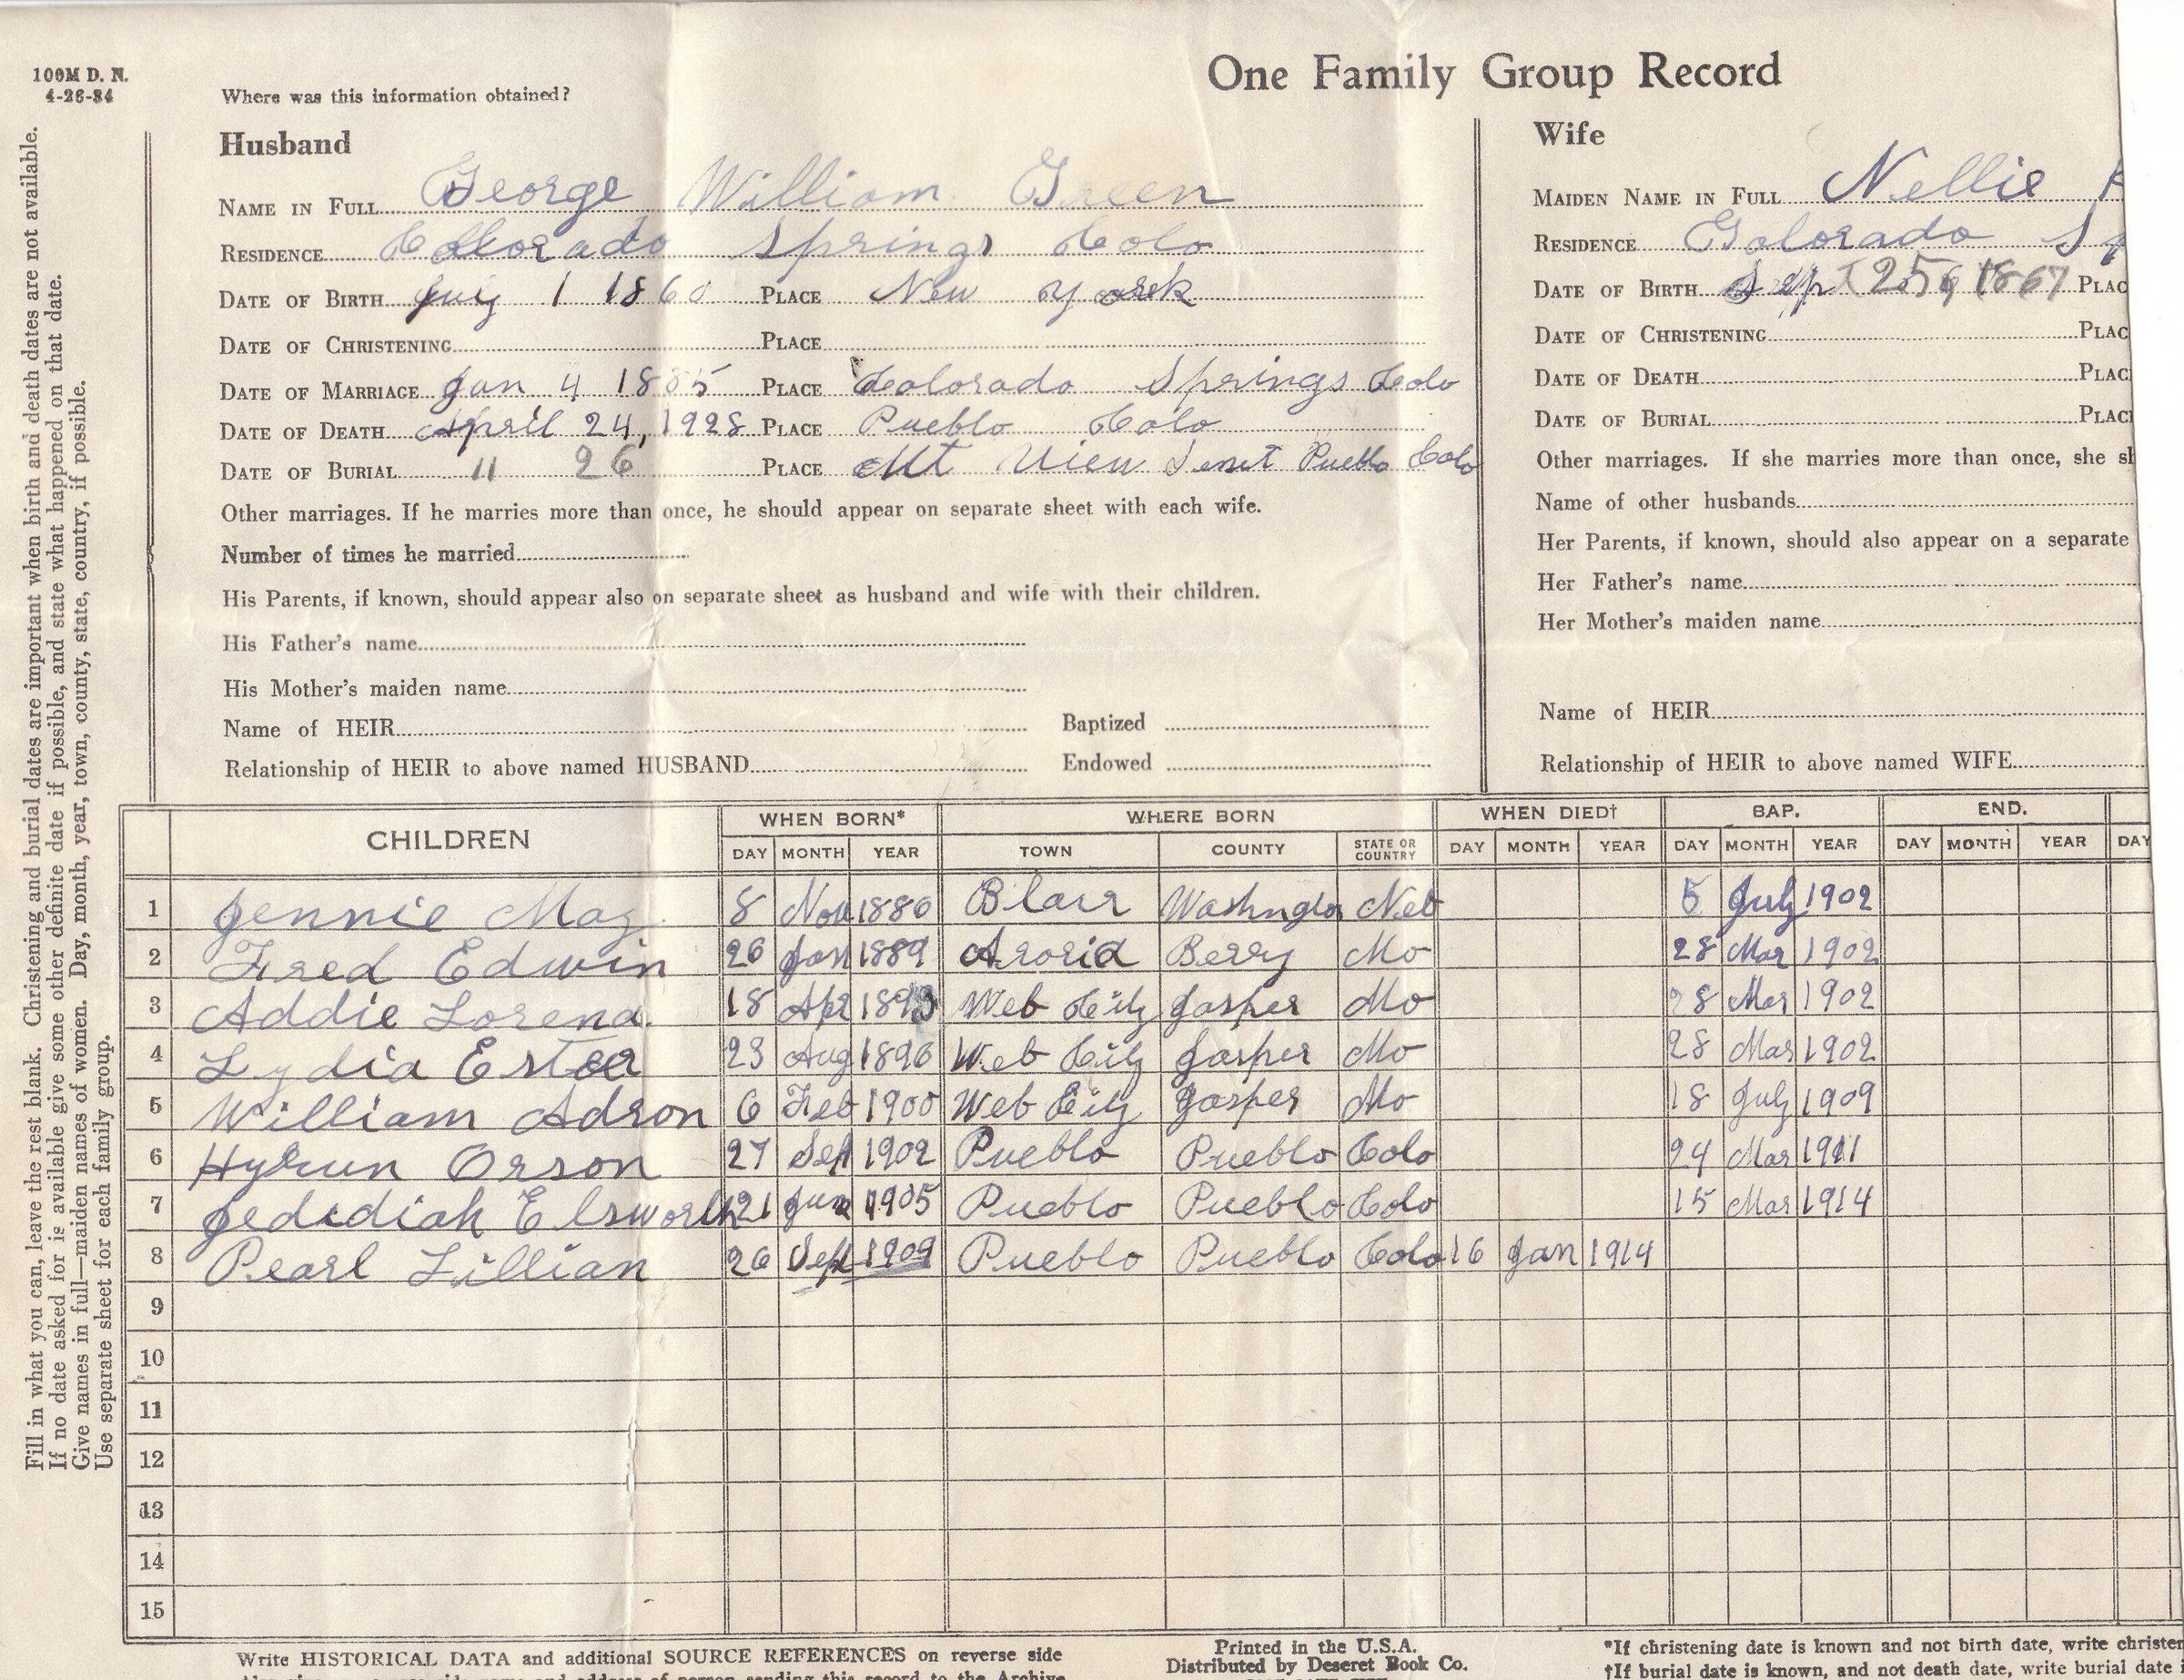 100M D. N.
4-26-34
Where was this information obtained?
One Family Group Record
Husband
NAME IN FULL George William Green
RESIDENCE Collorado Springs Colo
DATE OF BIRTH July 1 1860 PLACE New Yorek
DATE OF CHRISTENING PLACE
DATE OF MARRIAGE Jan 4 1885 PLACE Colorado Springs Colo
DATE OF DEATH April 24, 1928 PLACE Pueblo Colo
DATE OF BURIAL 11 26 PLACE Mt View Pueblo Colo
Other marriages. If he marries more than once, he should appear on separate sheet with each wife.
Number of times he married
His Parents, if known, should appear also on separate sheet as husband and wife with their children.
His Father's name
His Mother's maiden name
Name of HEIR Baptized
Relationship of HEIR to above named HUSBAND Endowed
Wife
MAIDEN NAME IN FULL Nellie
RESIDENCE Colorado Sp
DATE OF BIRTH Sept 25, 1867 PLAC
DATE OF CHRISTENING PLAC
DATE OF DEATH PLAC
DATE OF BURIAL PLAC
Other marriages. If she marries more than once, she sh
Name of other husbands
Her Parents, if known, should also appear on a separate
Her Father's name
Her Mother's maiden name
Name of HEIR
Relationship of HEIR to above named WIFE
Fill in what you can, leave the rest blank. Christening and burial dates are important when birth and death dates are not available.
If no date asked for is available give some other definite date if possible, and state what happened on that date.
Give names in full—maiden names of women. Day, month, year, town, county, state, country, if possible.
Use separate sheet for each family group.
CHILDREN WHEN BORN* WHERE BORN WHEN DIED† BAP. END.
DAY MONTH YEAR TOWN COUNTY STATE OR COUNTRY DAY MONTH YEAR DAY MONTH YEAR DAY MONTH YEAR DAY
1 Jennie May 8 Nov 1886 Blair Washngton Neb 5 July 1902
2 Fred Edwin 26 Jan 1889 Berry Mo 28 Mar 1902
3 Addie Lorena 18 Apr 1893 Web City Jasper Mo 28 Mar 1902
4 Lydia Ester 23 Aug 1896 Web City Jasper Mo 28 Mar 1902
5 William Adron 6 Feb 1900 Web City Jasper Mo 18 July 1909
6 Hyrum Orson 27 Sept 1902 Pueblo Pueblo Colo 24 Mar 1911
7 Jedidiah Elsworth 21 Jun 1905 Pueblo Pueblo Colo 15 Mar 1914
8 Pearl Lillian 26 Sept 1909 Pueblo Pueblo Colo 16 Jan 1914
9
10
11
12
13
14
15
Write HISTORICAL DATA and additional SOURCE REFERENCES on reverse side
Printed in the U.S.A.
Distributed by Deseret Book Co.
*If christening date is known and not birth date, write christen
†If burial date is known, and not death date, write burial date